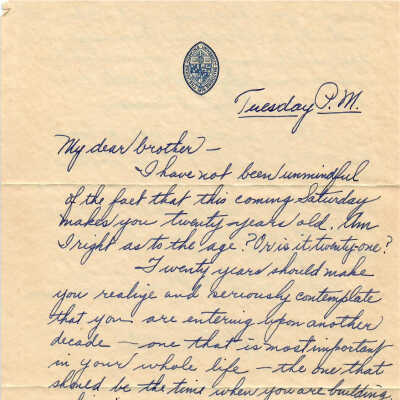 Tuesday P.M.
My dear brother —
I have not been unmindful
of the fact that this coming Saturday
makes you twenty years old. Am
I right as to the age? Or is it twenty-one?
Twenty years should make
you realize and seriously contemplate
that you are entering upon another
decade — one that is most important
in your whole life — the one that
should be the time when you are building